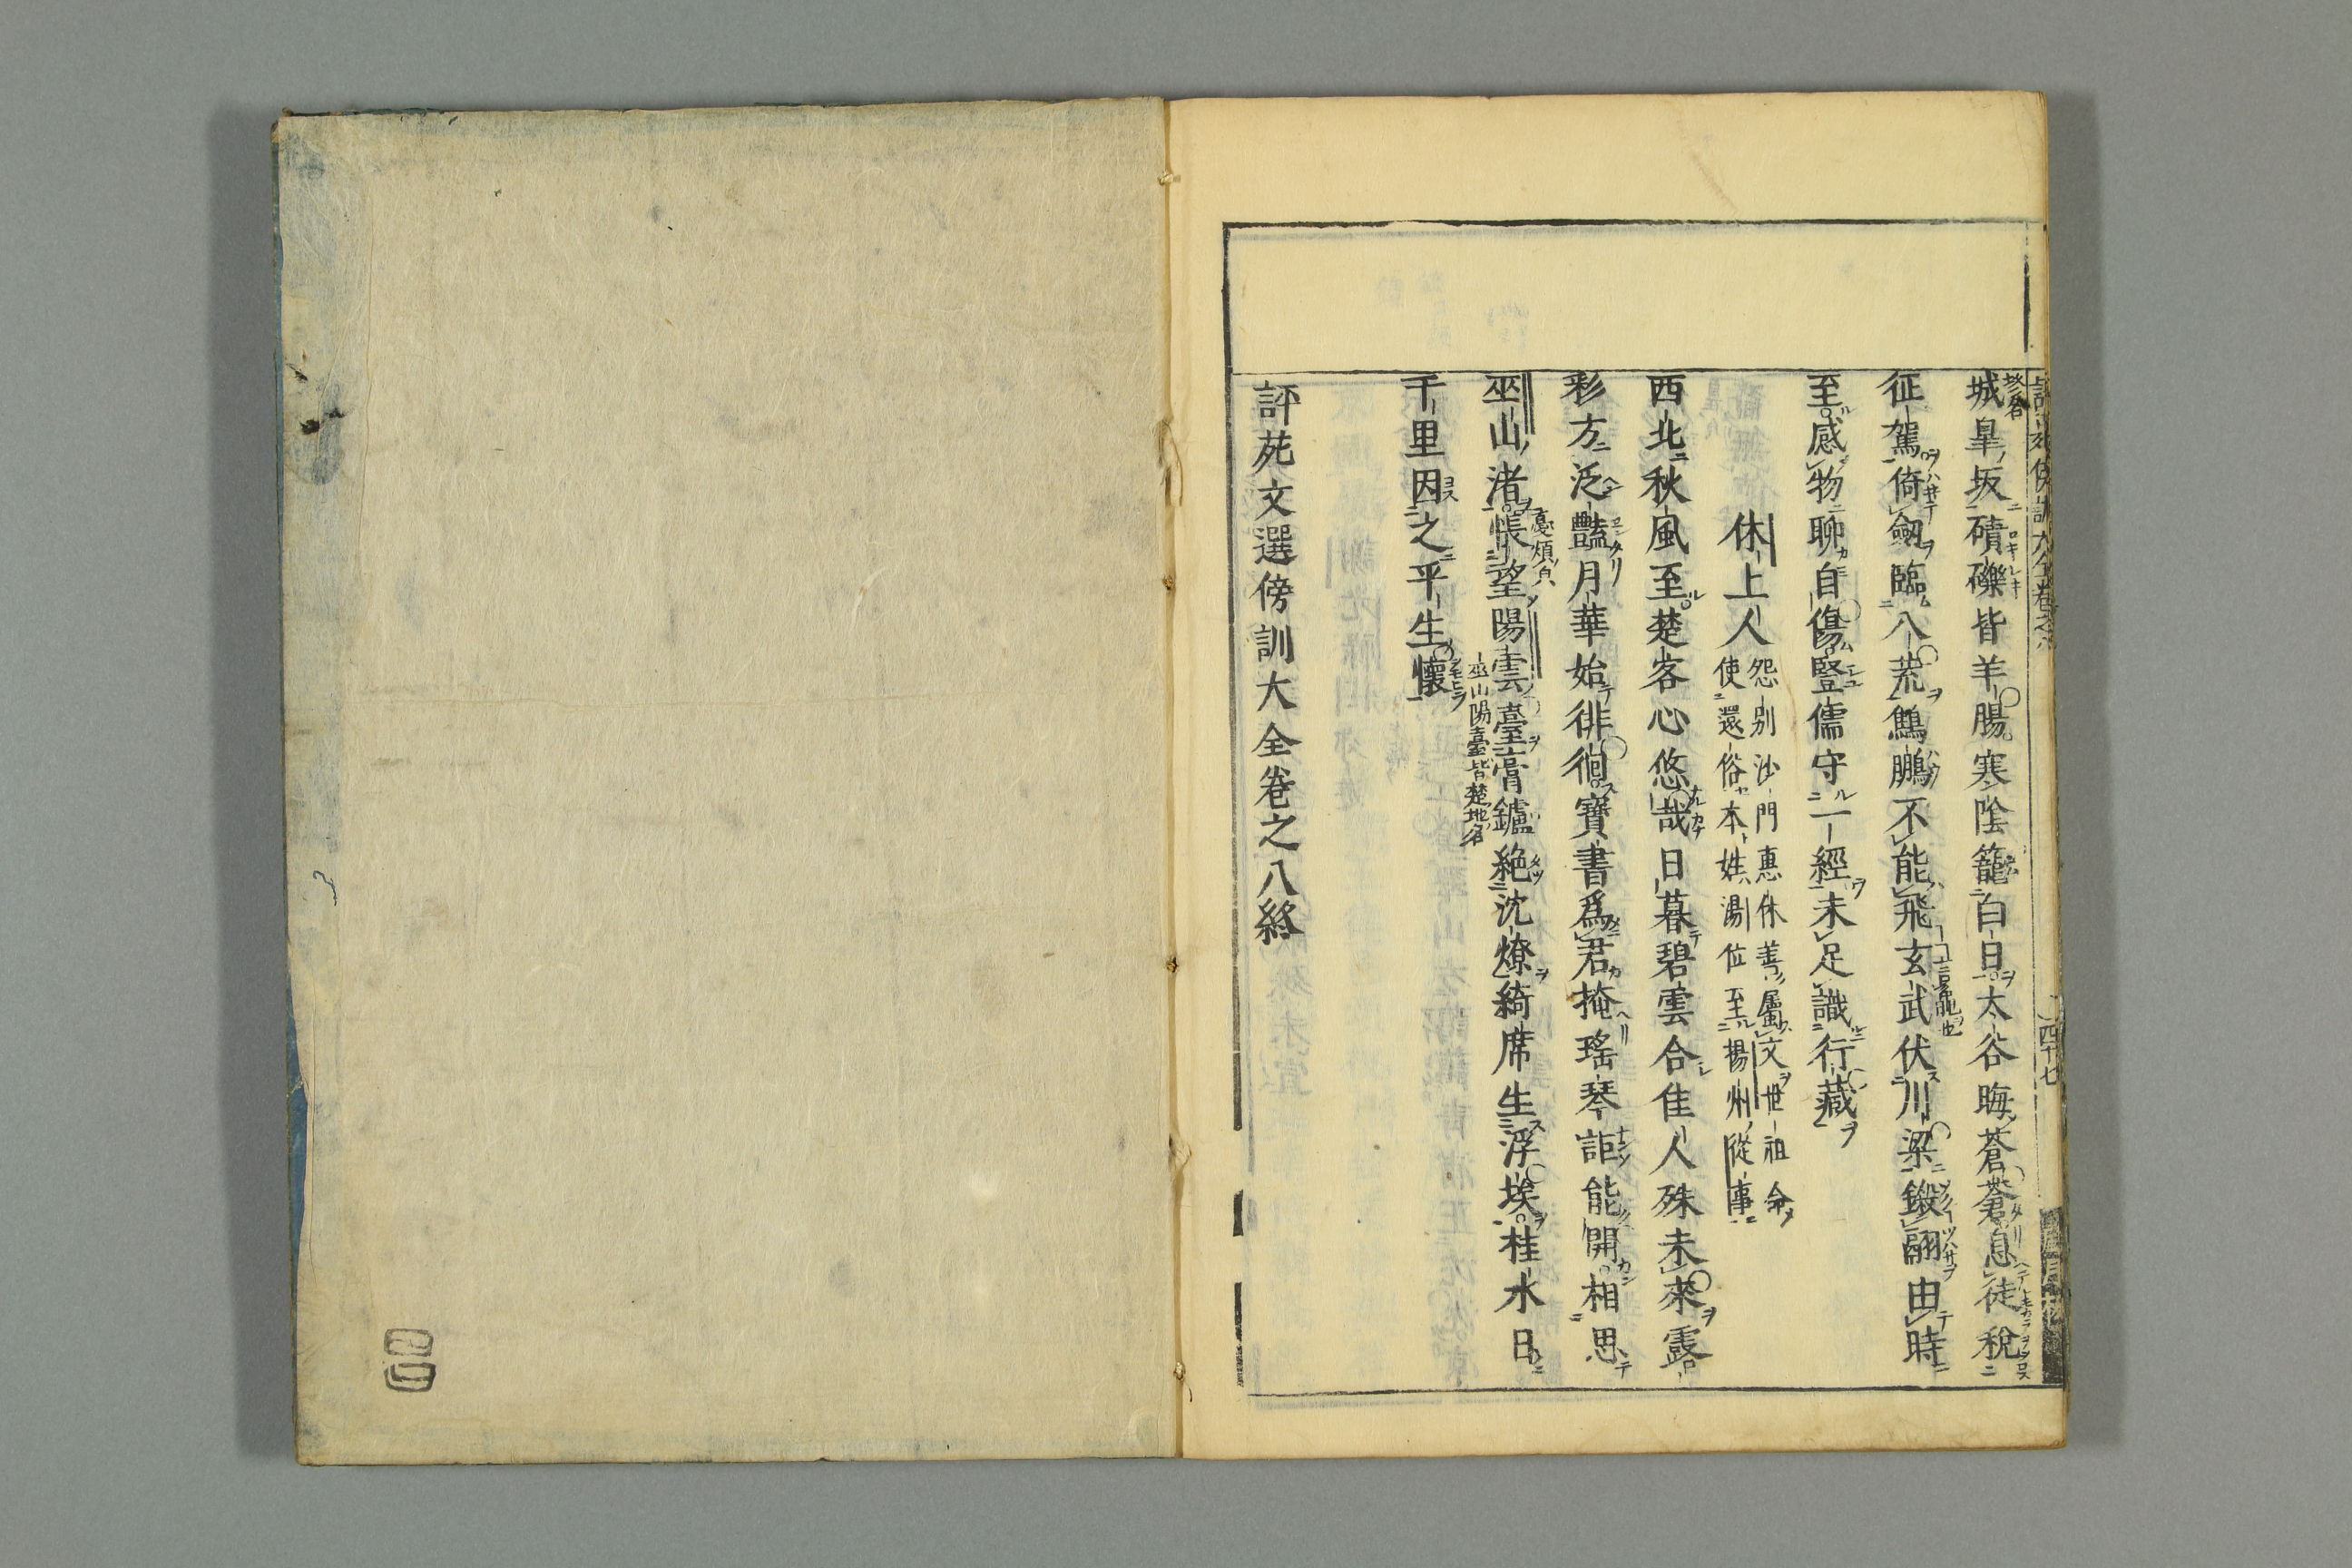 城皐坂磧礫皆羊腸寒陰籠白日太谷晦蒼蒼息徒稅
征駕倚劔臨八荒鷦鵬不能飛玄武伏川梁鎩翮由時
至感物聊自傷竪儒守一經未足識行藏
休上人
怨別沙門惠休善屬文世祖命
使還俗本姓湯位至揚州從事
西北秋風至楚客心悠哉日暮碧雲合佳人殊未來露
彩方泛豔月華始徘徊寶書爲君掩瑤琴詎能開相思
巫山渚悵望陽雲臺膏鑪絕沈燎綺席生浮埃桂水日
巫山陽臺皆楚地名
千里因之平生懷
評苑文選傍訓大全卷之八終
四十七